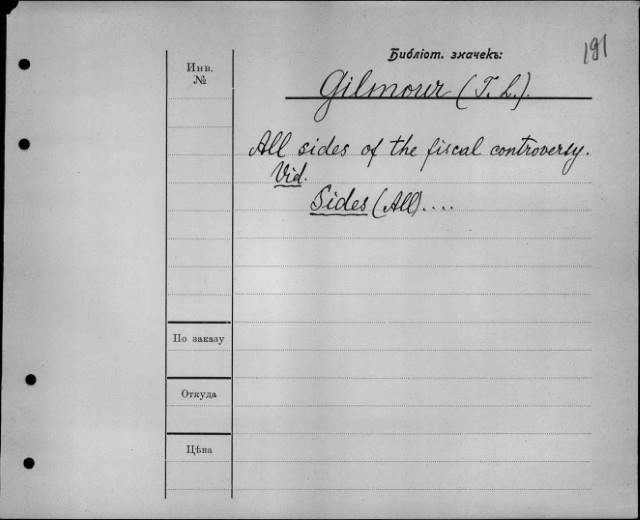 Библіот. значекъ:
191
Инв.
№
Gilmour (T. L.).
All sides of the fiscal controversy.
Vid.
Sides (All)....
По заказу
Откуда
Цѣна